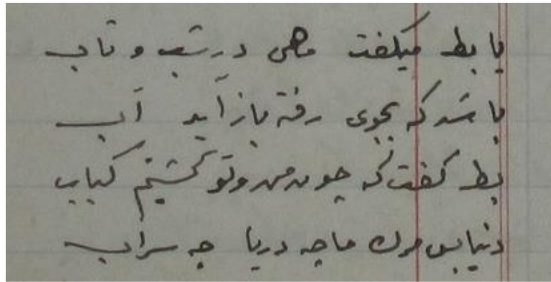 با بط میگفت ماهی در تب و تاب
باشد که بجوی رفته باز آید آب
بط گفت که چون من و تو گشتیم کباب
دنیا پس مرگ ما چه دریا چه سراب